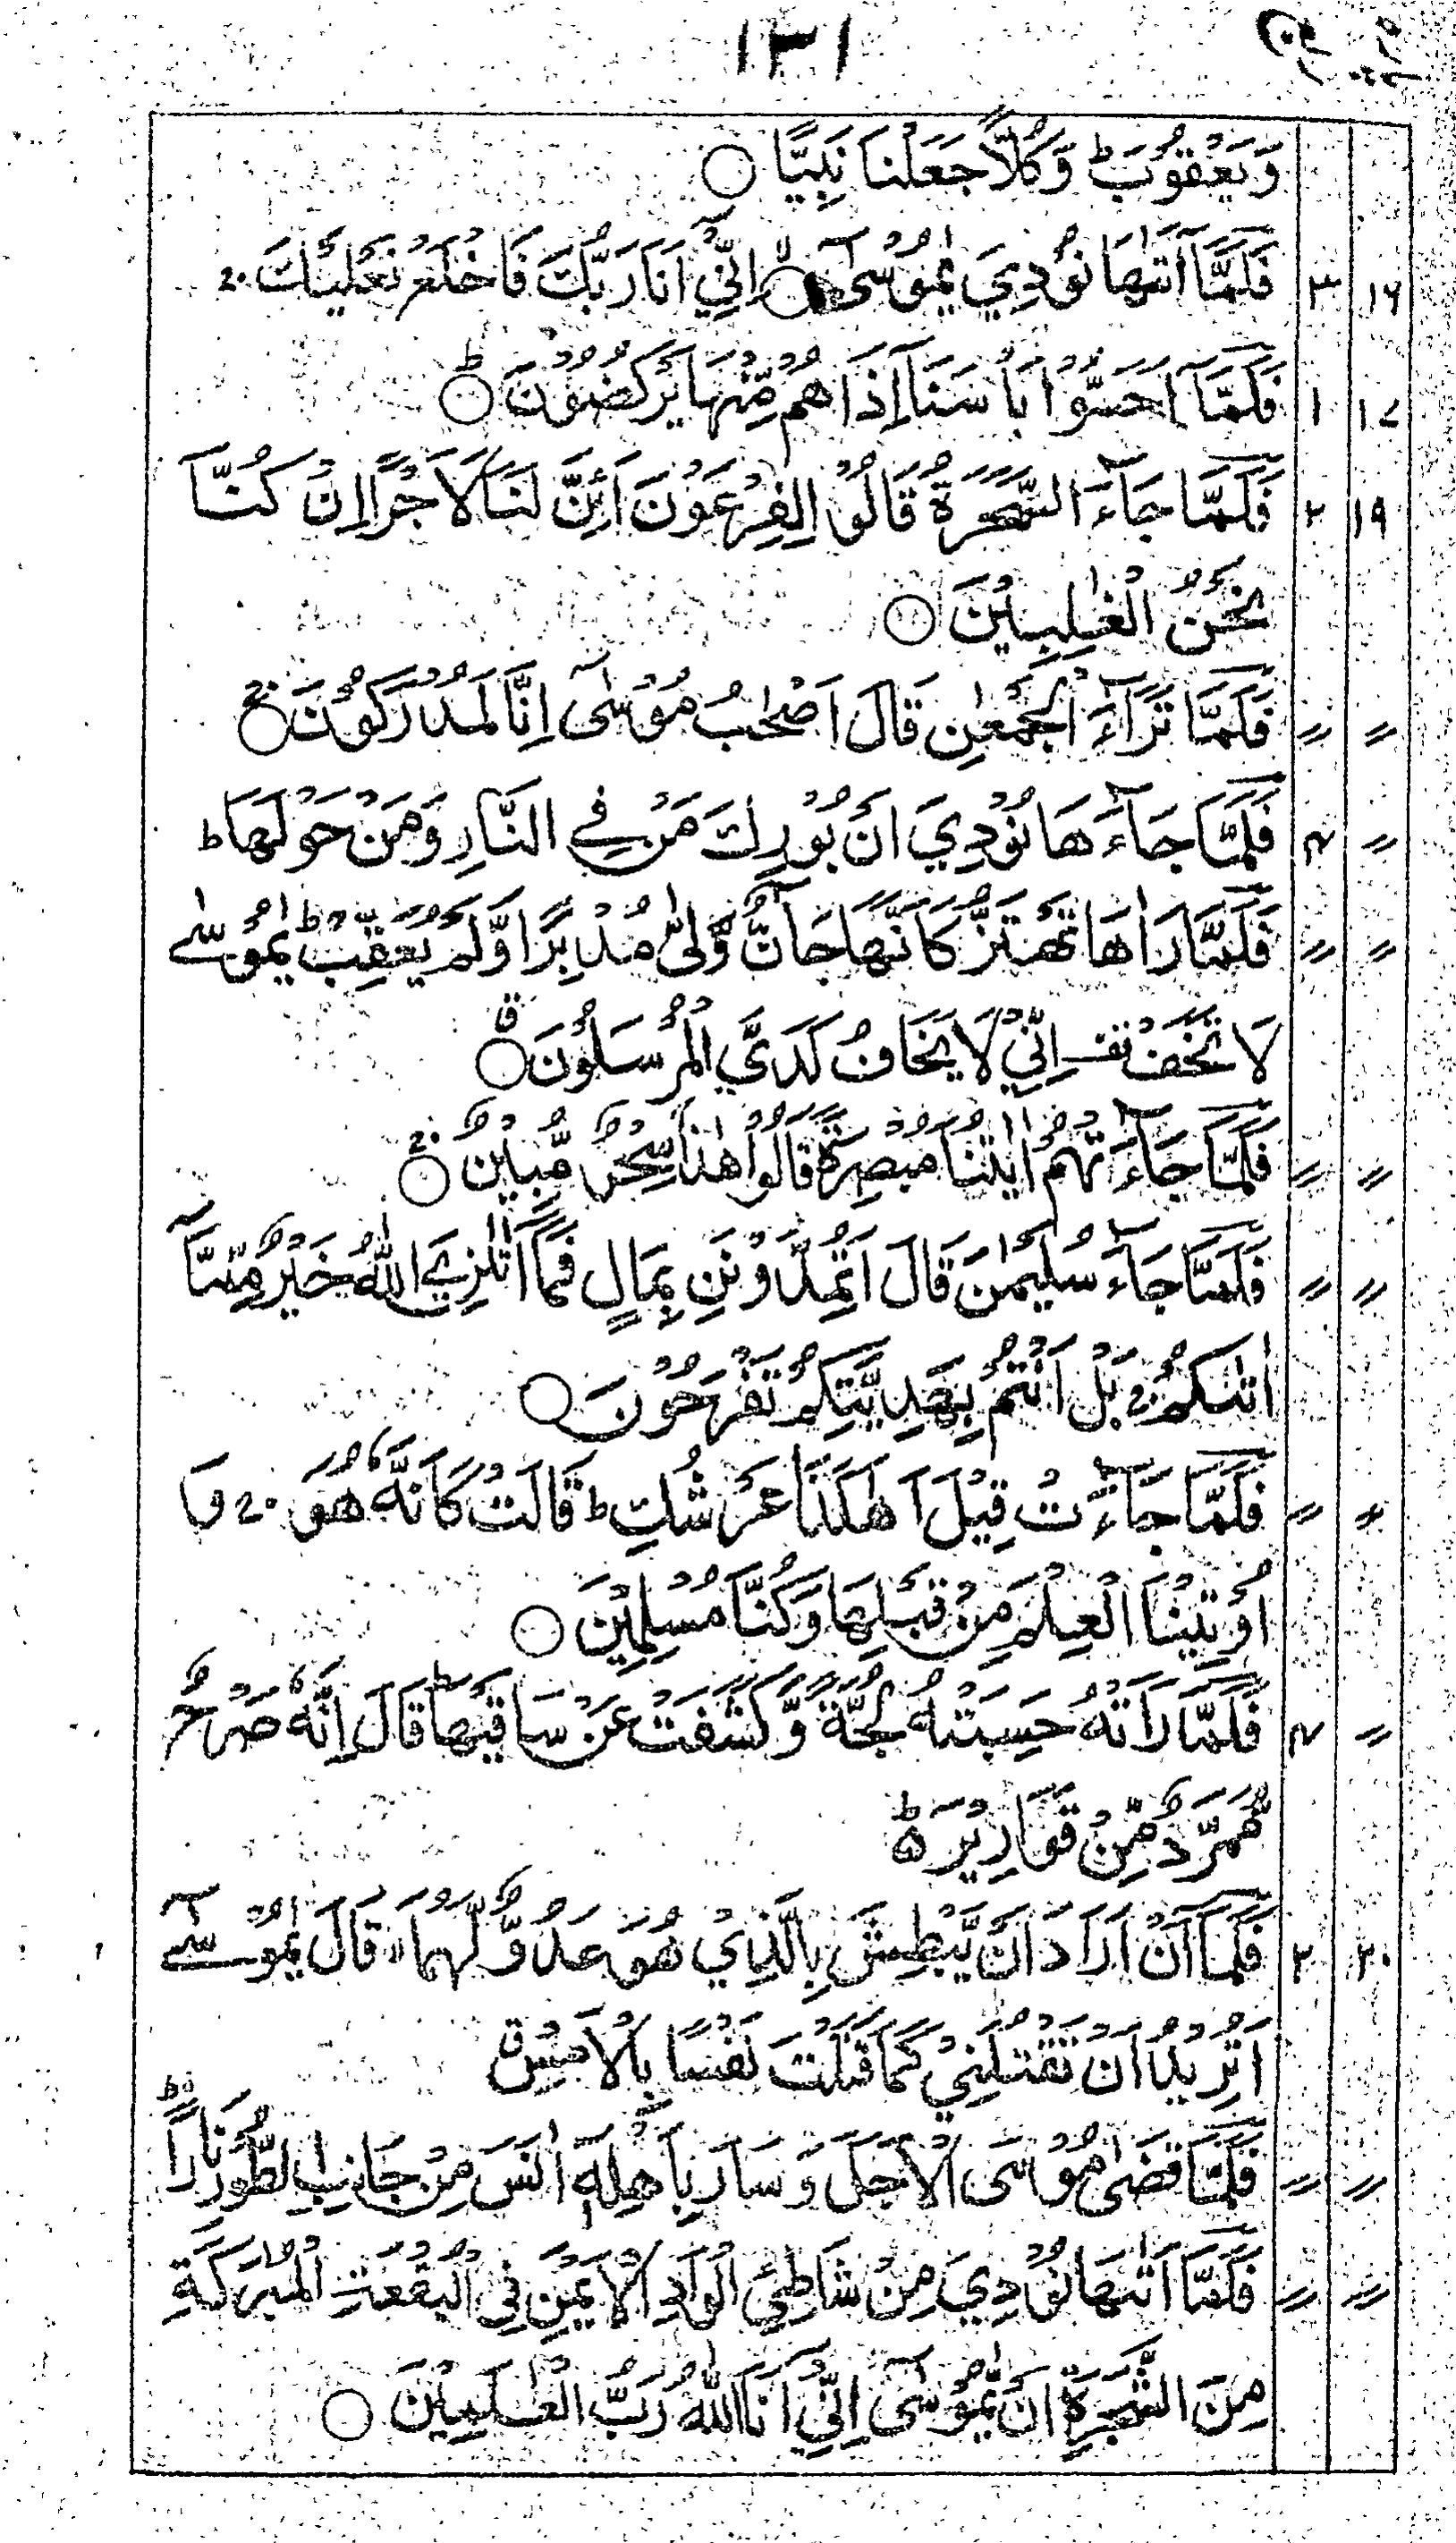 ۱۳۱
وَيَعْقُوْبَ ط وَكُلًّا جَعَلْنَا نَبِيًّا ○
۱۶ ۳ فَلَمَّآ اَتٰىهَا نُوْدِيَ يٰمُوْسٰٓى ○ اِنِّيْٓ اَنَا رَبُّكَ فَاخْلَعْ نَعْلَيْكَ ج
۱۷ ۱ فَلَمَّآ اَحَسُّوْا بَاْسَنَآ اِذَا هُمْ مِّنْهَا يَرْكُضُوْنَ ○ ط
۱۹ ۲ فَلَمَّا جَآءَ السَّحَرَةُ قَالُوْا لِفِرْعَوْنَ اَئِنَّ لَنَا لَاَجْرًا اِنْ كُنَّا
نَحْنُ الْغٰلِبِيْنَ ○
〃 〃 فَلَمَّا تَرَآءَ الْجَمْعٰنِ قَالَ اَصْحٰبُ مُوْسٰٓى اِنَّا لَمُدْرَكُوْنَ ○ ج
〃 ۴ فَلَمَّا جَآءَهَا نُوْدِيَ اَنْۢ بُوْرِكَ مَنْ فِي النَّارِ وَمَنْ حَوْلَهَا ط
〃 〃 فَلَمَّا رَاٰهَا تَهْتَزُّ كَاَنَّهَا جَآنٌّ وَّلّٰى مُدْبِرًا وَّلَمْ يُعَقِّبْ ط يٰمُوْسٰى
لَا تَخَفْ قف اِنِّيْ لَا يَخَافُ لَدَيَّ الْمُرْسَلُوْنَ ○ ق
〃 〃 فَلَمَّا جَآءَتْهُمْ اٰيٰتُنَا مُبْصِرَةً قَالُوْا هٰذَا سِحْرٌ مُّبِيْنٌ ○ ج
〃 〃 فَلَمَّا جَآءَ سُلَيْمٰنَ قَالَ اَتُمِدُّوْنَنِ بِمَالٍ فَمَآ اٰتٰىنِيَ اللّٰهُ خَيْرٌ مِّمَّآ
اٰتٰىكُمْ ج بَلْ اَنْتُمْ بِهَدِيَّتِكُمْ تَفْرَحُوْنَ ○
〃 〃 فَلَمَّا جَآءَتْ قِيْلَ اَهٰكَذَا عَرْشُكِ ط قَالَتْ كَاَنَّهٗ هُوَ ج وَ
اُوْتِيْنَا الْعِلْمَ مِنْ قَبْلِهَا وَكُنَّا مُسْلِمِيْنَ ○
〃 ۴ فَلَمَّا رَاَتْهُ حَسِبَتْهُ لُجَّةً وَّكَشَفَتْ عَنْ سَاقَيْهَا ط قَالَ اِنَّهٗ صَرْحٌ
مُّمَرَّدٌ مِّنْ قَوَارِيْرَ ط
۲۰ ۲ فَلَمَّآ اَنْ اَرَادَ اَنْ يَّبْطِشَ بِالَّذِيْ هُوَ عَدُوٌّ لَّهُمَا لا قَالَ يٰمُوْسٰٓى
اَتُرِيْدُ اَنْ تَقْتُلَنِيْ كَمَا قَتَلْتَ نَفْسًا بِالْاَمْسِ ق
〃 〃 فَلَمَّا قَضٰى مُوْسَى الْاَجَلَ وَسَارَ بِاَهْلِهٖٓ اٰنَسَ مِنْ جَانِبِ الطُّوْرِ نَارًا ج
〃 〃 فَلَمَّآ اَتٰىهَا نُوْدِيَ مِنْ شَاطِئِ الْوَادِ الْاَيْمَنِ فِى الْبُقْعَةِ الْمُبٰرَكَةِ
مِنَ الشَّجَرَةِ اَنْ يّٰمُوْسٰٓى اِنِّيْٓ اَنَا اللّٰهُ رَبُّ الْعٰلَمِيْنَ ○